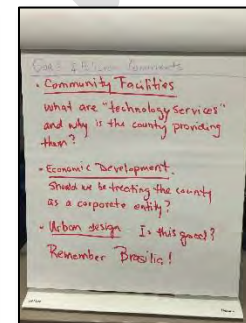 · Community Facilities
what are "technology services"
and why is the county providing
them?
· Economic Development.
Should we be treating the county
as a corporate entity?
· Urban design Is this good?
Remember Brasilia!